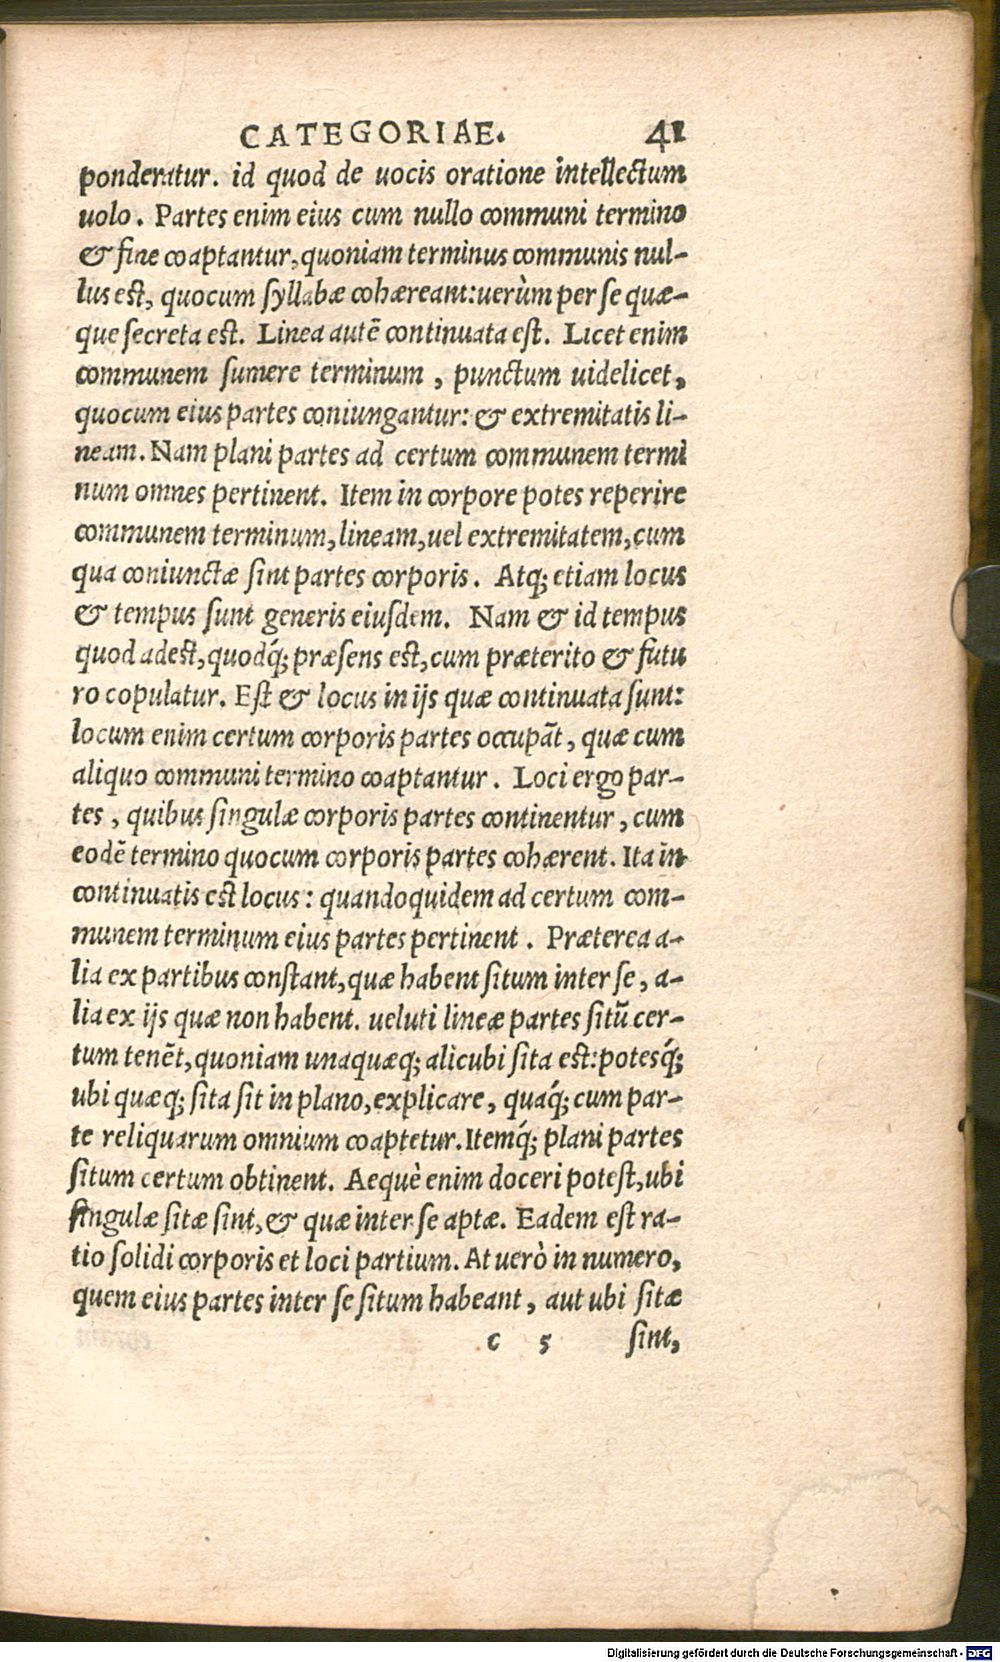 CATEGORIAE. 41
ponderatur. id quod de uocis oratione intellectum
uolo. Partes enim eius cum nullo communi termino
& fine coaptantur, quoniam terminus communis nul-
lus est, quocum syllabæ cohæreant: uerùm per se quæ-
que secreta est. Linea autẽ continuata est. Licet enim
communem sumere terminum, punctum uidelicet,
quocum eius partes coniungantur: & extremitatis li-
neam. Nam plani partes ad certum communem termi
num omnes pertinent. Item in corpore potes reperire
communem terminum, lineam, uel extremitatem, cum
qua coniunctæ sint partes corporis. Atq; etiam locus
& tempus sunt generis eiusdem. Nam & id tempus
quod adest, quodq́; præsens est, cum præterito & futu
ro copulatur. Est & locus in ijs quæ continuata sunt:
locum enim certum corporis partes occupãt, quæ cum
aliquo communi termino coaptantur. Loci ergo par-
tes, quibus singulæ corporis partes continentur, cum
eodẽ termino quocum corporis partes cohærent. Ita in
continuatis est locus: quandoquidem ad certum com-
munem terminum eius partes pertinent. Præterea a-
lia ex partibus constant, quæ habent situm inter se, a-
lia ex ijs quæ non habent. ueluti lineæ partes sitũ cer-
tum tenẽt, quoniam unaquæq; alicubi sita est: potesq́;
ubi quæq; sita sit in plano, explicare, quaq́; cum par-
te reliquarum omnium coaptetur. Itemq́; plani partes
situm certum obtinent. Aequè enim doceri potest, ubi
singulæ sitæ sint, & quæ inter se aptæ. Eadem est ra-
tio solidi corporis et loci partium. At uerò in numero,
quem eius partes inter se situm habeant, aut ubi sitæ
c 5 sint,
Digitalisierung gefördert durch die Deutsche Forschungsgemeinschaft - DFG